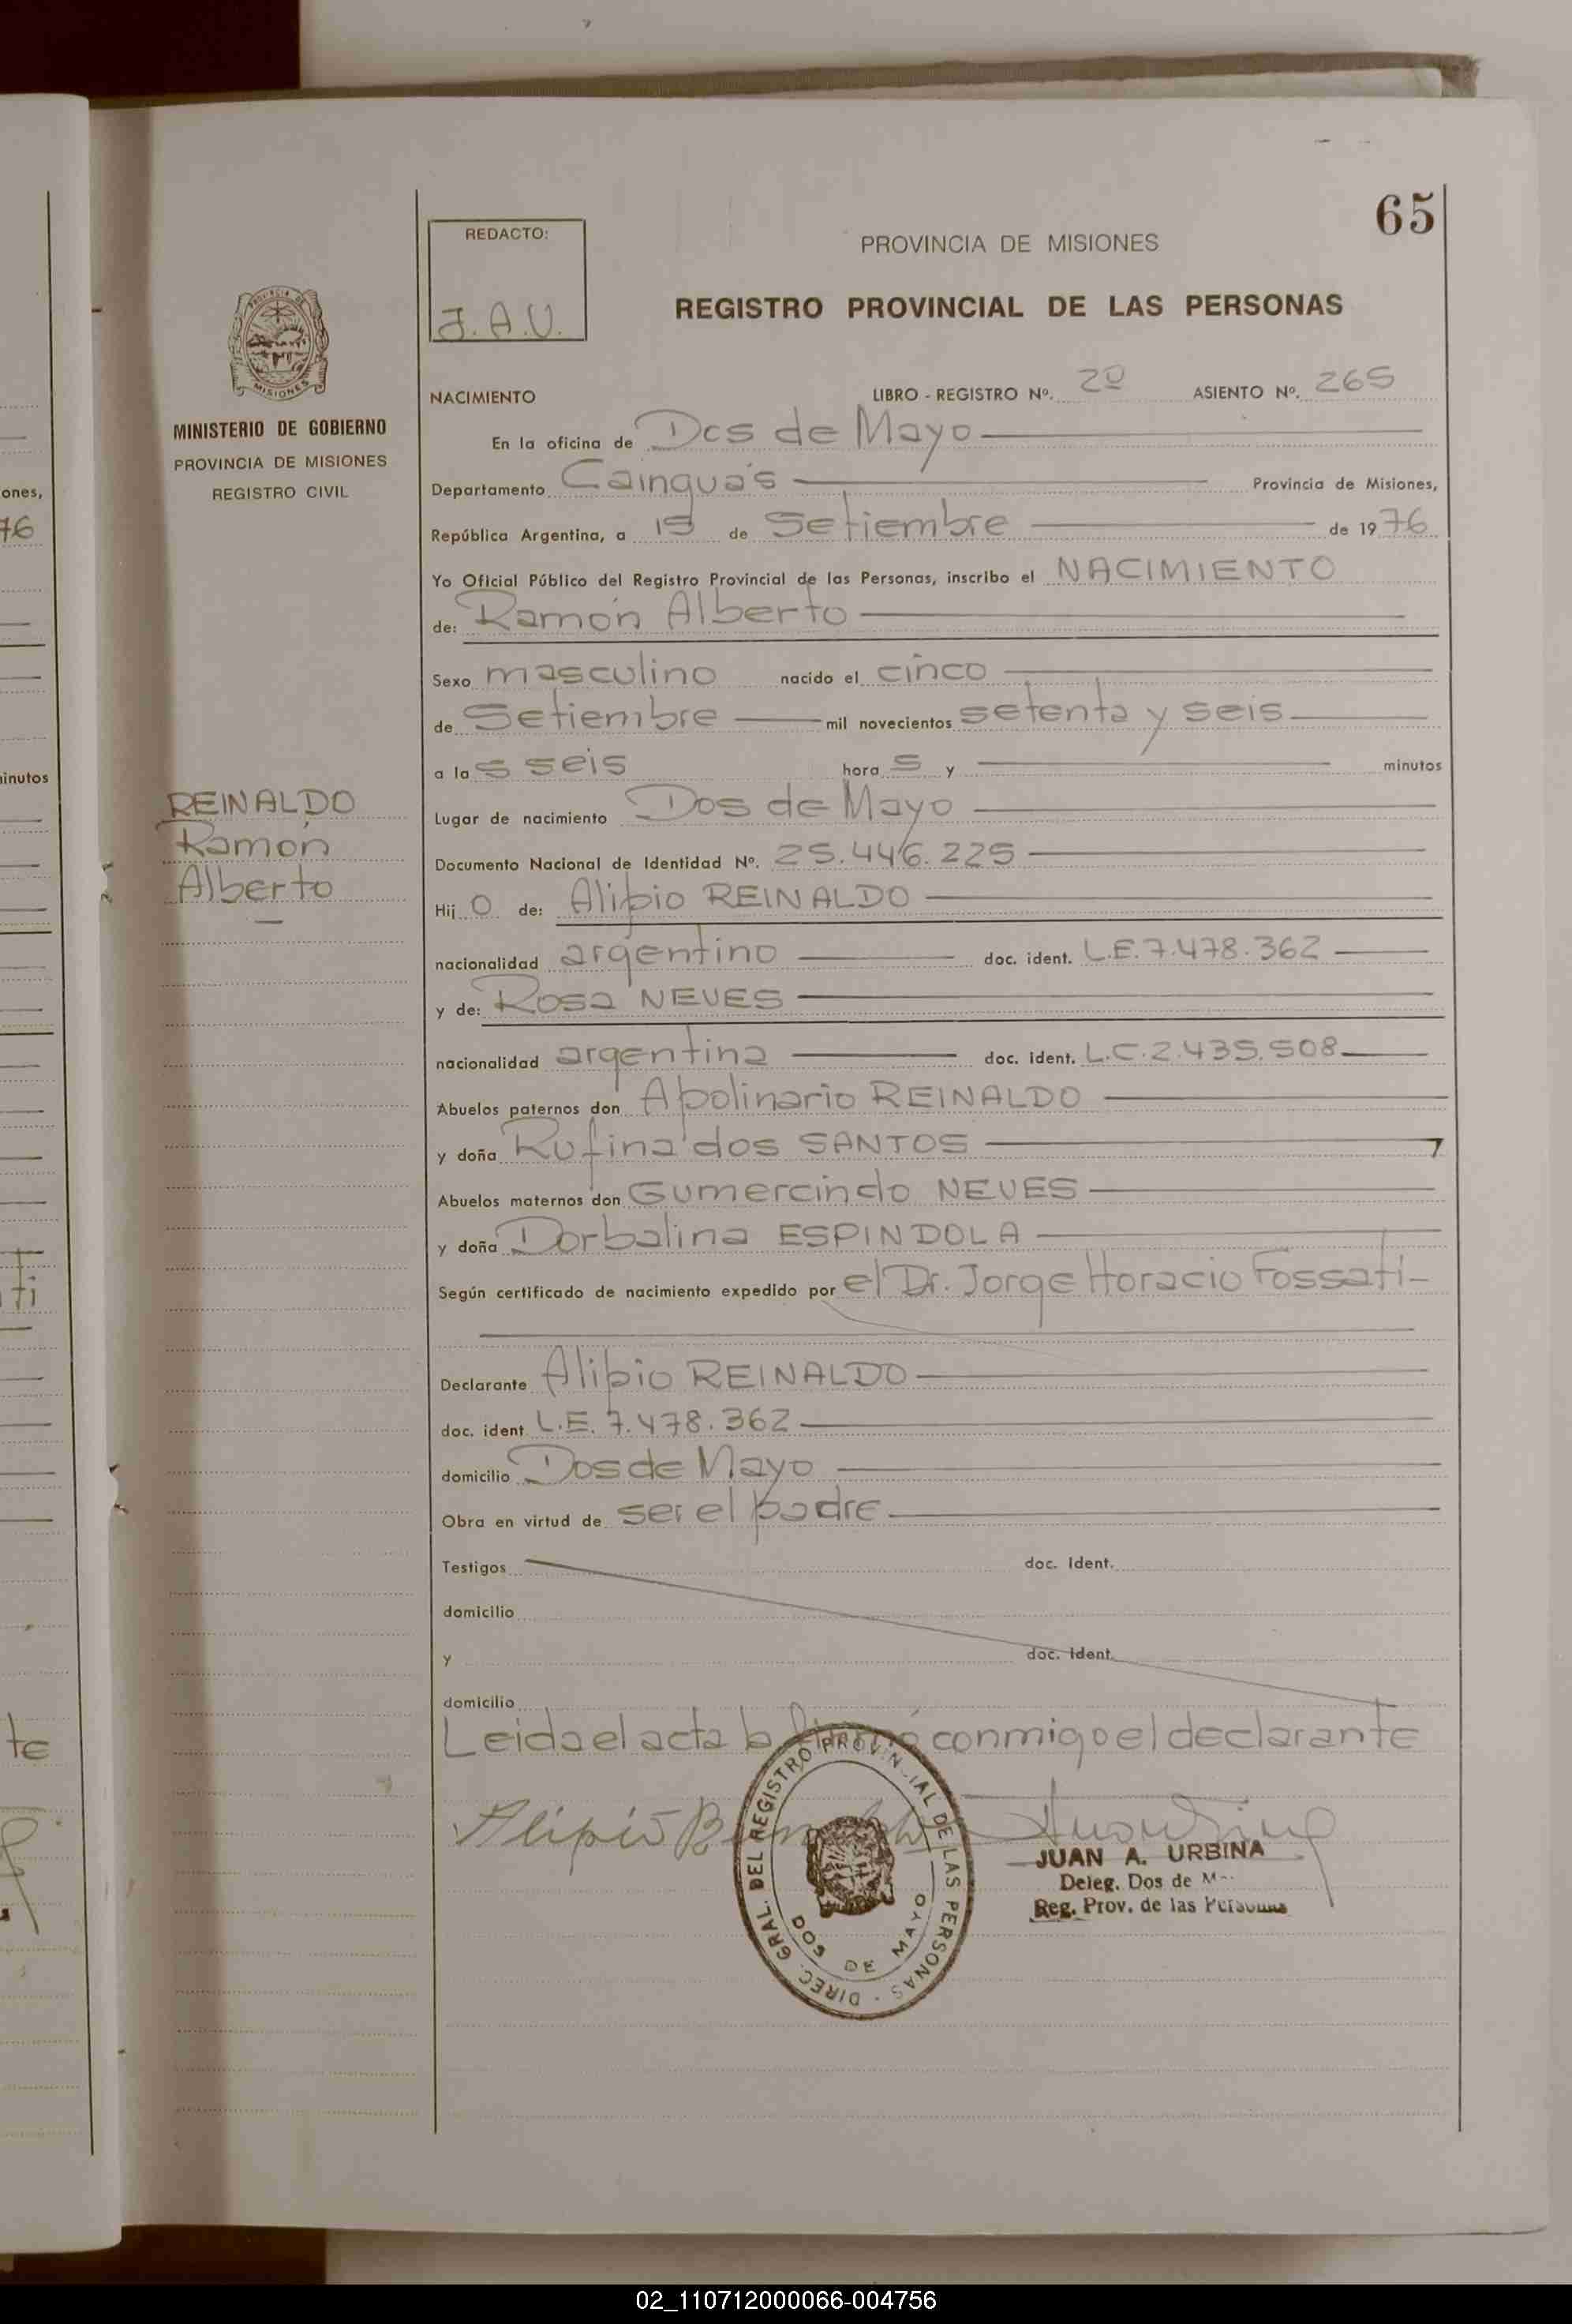 65
REDACTO:
J. A. U.
PROVINCIA DE MISIONES
REGISTRO PROVINCIAL DE LAS PERSONAS
MISIONES
MINISTERIO DE GOBIERNO
PROVINCIA DE MISIONES
REGISTRO CIVIL
NACIMIENTO LIBRO - REGISTRO Nº. 2º ASIENTO Nº. 265
En la oficina de Dos de Mayo
Departamento Cainguás Provincia de Misiones,
República Argentina, a 15 de Setiembre de 1976
Yo Oficial Público del Registro Provincial de las Personas, inscribo el NACIMIENTO
de: Ramón Alberto
Sexo masculino nacido el cinco
de Setiembre mil novecientos setenta y seis
a las seis horas y minutos
REINALDO
Ramón
Alberto
Lugar de nacimiento Dos de Mayo
Documento Nacional de Identidad Nº. 25.446.225
Hijo de: Alipio REINALDO
nacionalidad argentino doc. ident. L.E. 7.478.362
y de: Rosa NEVES
nacionalidad argentina doc. ident. L.C. 2.435.508
Abuelos paternos don Apolinario REINALDO
y doña Rufina dos SANTOS
Abuelos maternos don Gumercindo NEVES
y doña Dorbalina ESPINDOLA
Según certificado de nacimiento expedido por el Dr. Jorge Horacio Fossati
Declarante Alipio REINALDO
doc. ident L.E. 7.478.362
domicilio Dos de Mayo
Obra en virtud de ser el padre
Testigos doc. ident.
domicilio
y doc. ident.
domicilio
Leida el acta la firmó conmigo el declarante
Alipio
DIREC. GRAL. DEL REGISTRO PROVINCIAL DE LAS PERSONAS
DOS DE MAYO
JUAN A. URBINA
Deleg. Dos de
Reg. Prov. de las Personas
ones,
76
inutos
ti
te
02_110712000066-004756